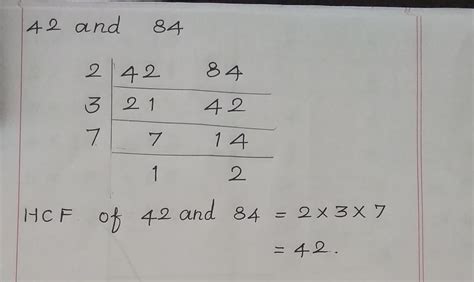 42 and 84
2 42 84
3 21 42
7 7 14
1 2
HCF of 42 and 84 = 2 × 3 × 7
= 42.